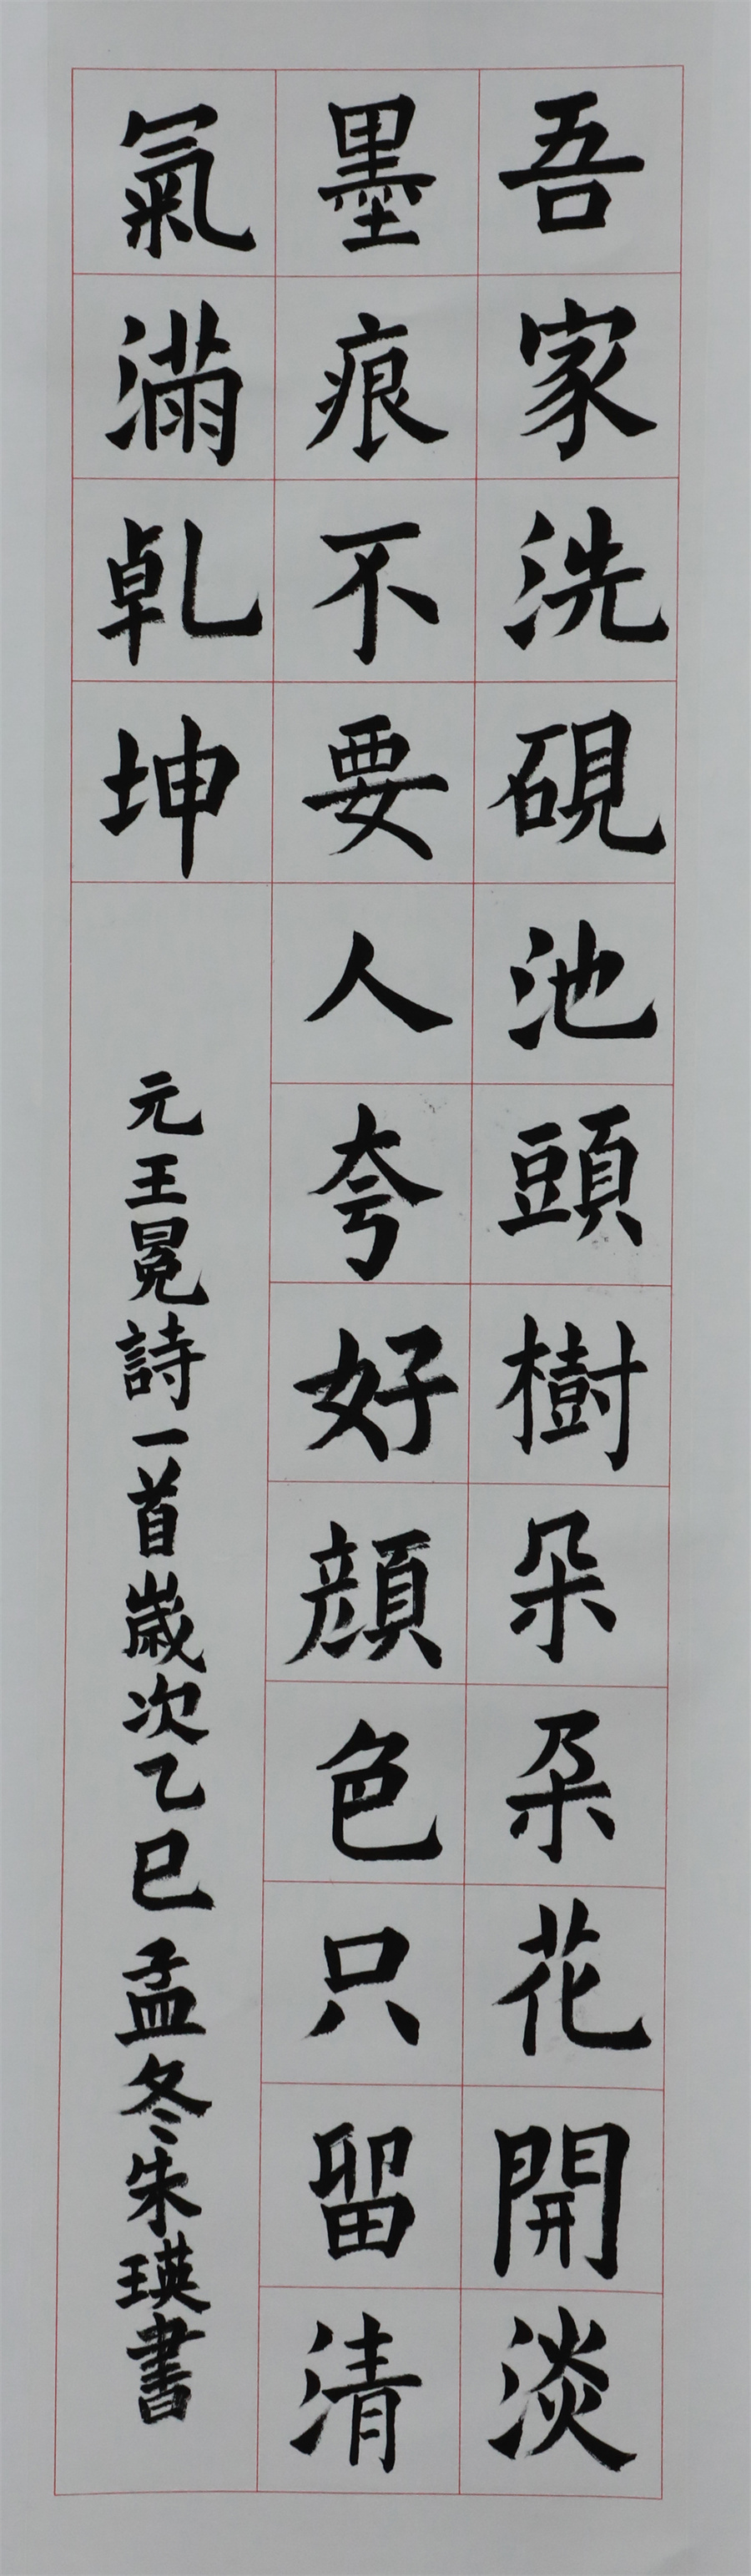 吾家洗硯池頭樹朵朵花開淡
墨痕不要人夸好顔色只留清
氣滿乹坤
元王冕詩一首歲次乙巳孟冬朱瑛書